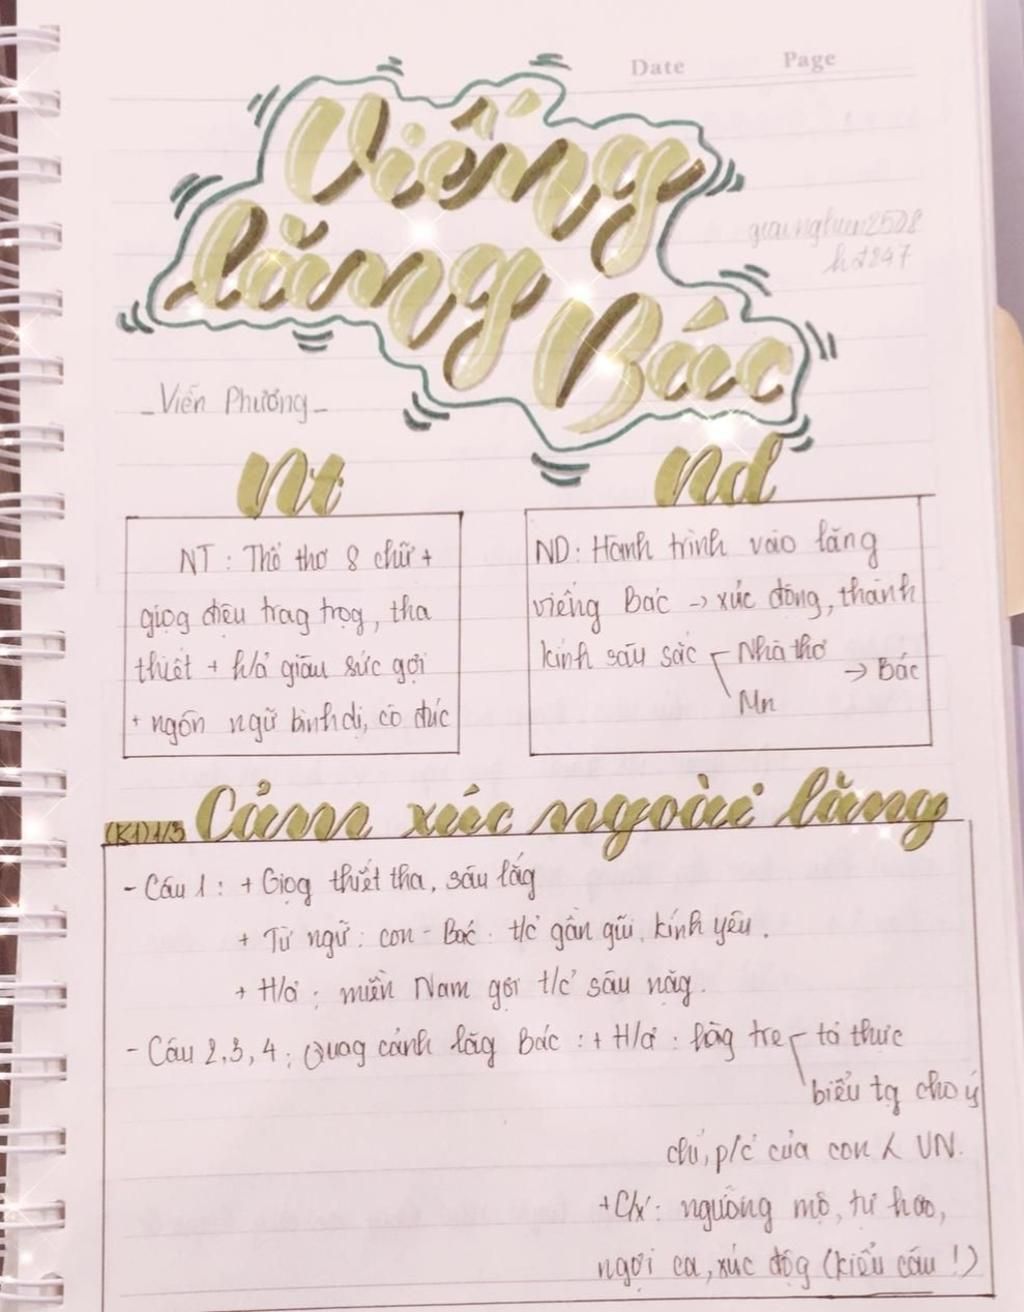 Date Page
Viếng
lăng Bác
h2247
_Viễn Phương_
Nt
Nd
NT : Thể thơ 8 chữ +
giọg điệu trag trọg, tha
thiết + h/ả giàu sức gợi
+ ngôn ngữ bình dị, cô đúc
ND: Hành trình vào lăng
viếng Bác → xúc động, thành
kính sâu sắc Nhà thơ → Bác
Mn
(K1) 1/3 Cảm xúc ngoài lăng
- Câu 1 : + Giọg thiết tha, sâu lắg
+ Từ ngữ : con - Bác . t/c gần gũi, kính yêu .
+ H/ả : miền Nam gợi t/c sâu nặg .
- Câu 2, 3, 4 : Quag cảnh lăg Bác : + H/ả : hàg tre tả thực
biểu tg cho ý
chí, p/c của con VN.
+ C/x : ngưỡng mộ, tự hào,
ngợi ca, xúc độg (kiểu câu !)